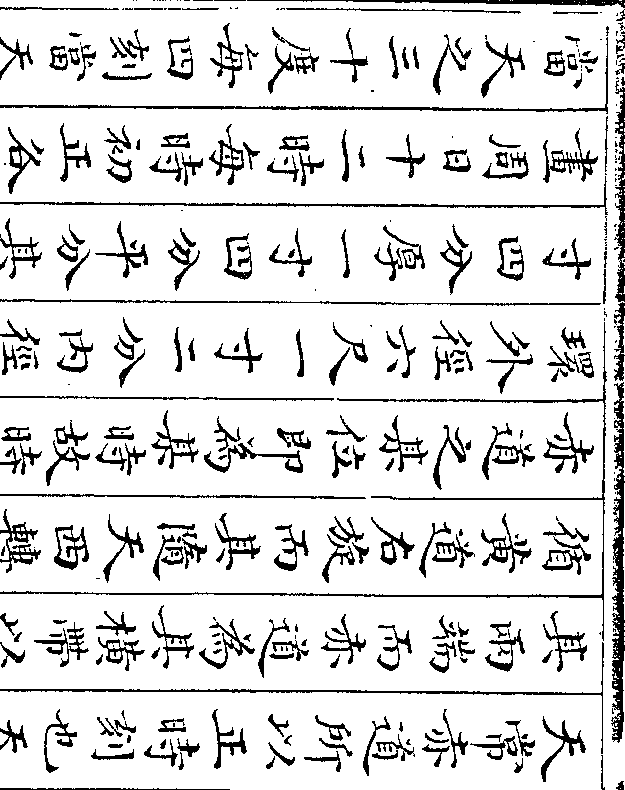 天常赤道所以正時刻也天
其兩端而赤道為其橫帶以
循黃道右旋而其隨天西轉
赤道之某位即為某時故時
環外徑六尺一寸二分內徑
寸四分厚一寸四分平分其
畫周日十二時每時初正各
當天之三十度每四刻當天